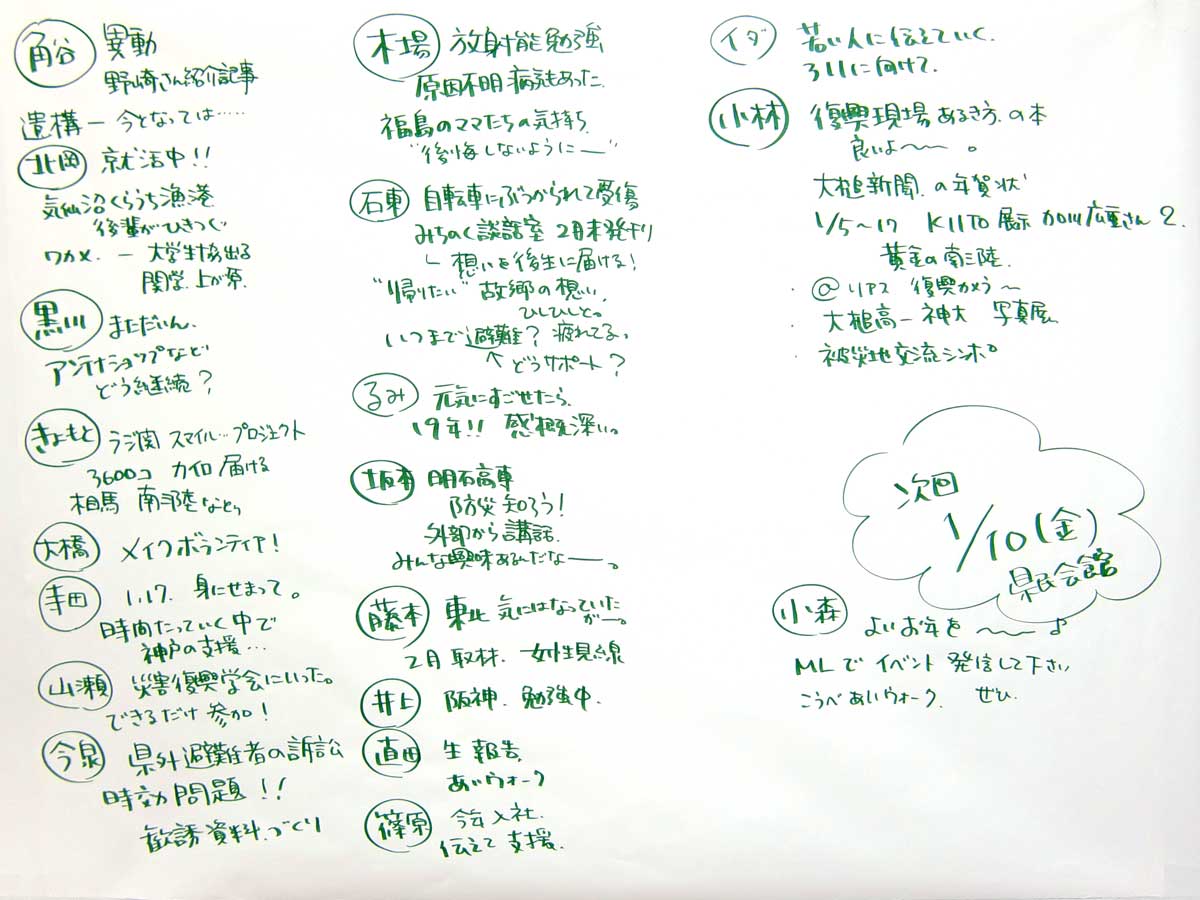 角谷 異動
野崎さん紹介記事
遺構ー今となっては……
北岡 就活中!!
気仙沼くらうち漁港
後輩がひきつぐ
ワカメ. ー 大学生協出る
関学. 上が原.
黒川 まただいん.
アンテナショップなど
どう継続?
きよもと ラジ関 スマイル…プロジェクト
3600コ カイロ届ける
相馬 南三陸など
大橋 メイクボランティア!
寺田 1.17. 身にせまって。
時間たっていく中で
神戸の支援…
山瀬 災害復興学会にいった。
できるだけ参加!
今泉 県外避難者の訴訟
時効問題!!
勧誘資料.づくり
木場 放射能勉強
原因不明病気もあった.
福島のママたちの気持ち.
"後悔しないようにー"
石東 自転車にぶつかられて受傷
みちのく談話室 2月末発刊
想いを後生に届ける!
"帰りたい" 故郷の想い,
ひしひしと。
いつまで避難? 疲れてる。
↖どうサポート?
るみ 元気にすごせたら.
19年!! 感概深い。
坂本 明石高専
防災知ろう!
外部から講話.
みんな興味あるんだなー。
藤本 東北 気にはなっていた
がー。
2月取材. 女性目線
井上 阪神. 勉強中.
直田 生報告.
あいウォーク
篠原 今年入社.
伝えて支援.
イダ 若い人に伝えていく.
311に向けて.
小林 復興現場あるき方.の本
良いよ〜〜。
大槌新聞.の年賀状
1/5~17 KIITO 展示 加川広重さん2.
黄金の南三陸.
・@リアス 復興カメラ〜
・大槌高ー神大 写真展.
・被災地交流シンポ
次回
1/10(金)
県民会館
小森 よいお年を〜〜♪
MLでイベント発信して下さい
こうべあいウォーク. ぜひ.